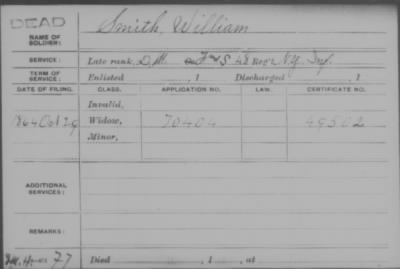 DEAD
Smith, William
NAME OF SOLDIER:
SERVICE: Late rank, F and S 48 Reg't N.Y. Inf.
TERM OF SERVICE: Enlisted , 1 Discharged , 1
DATE OF FILING. CLASS. APPLICATION NO. LAW. CERTIFICATE NO.
Invalid,
1864 Oct 29 Widow, 70404 49502
Minor,
ADDITIONAL SERVICES:
REMARKS:
77 Died , 1 , at